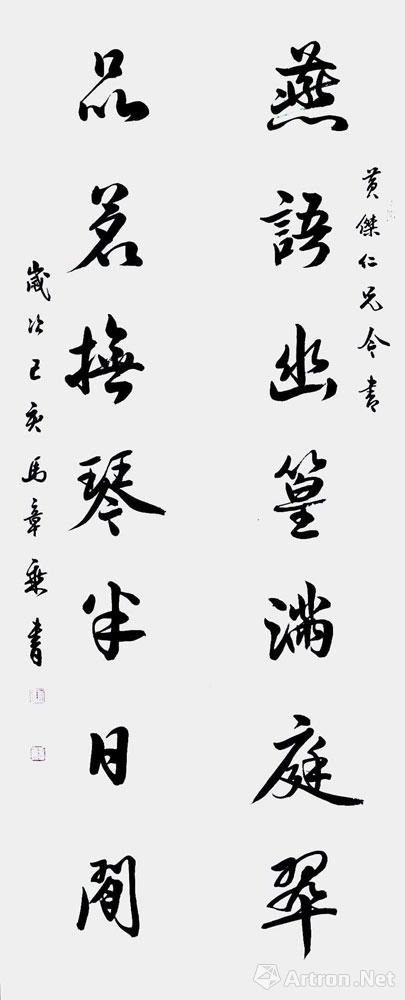 黄傑仁兄令書
燕語幽篁滿庭翠
品茗撫琴半日閒
歲次己亥馬章乘書
Artron.Net